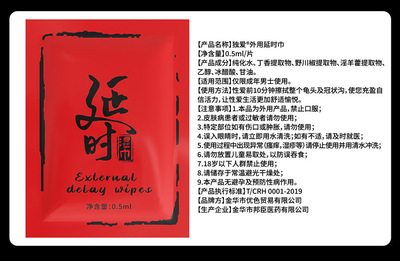 延时
湿巾
External
delay wipes
净含量：0.5ml
【产品名称】独爱®外用延时巾
【净含量】0.5ml/片
【产品成分】纯化水、丁香提取物、野川椒提取物、淫羊藿提取物、
乙醇、冰醋酸、甘油。
【适用范围】仅限成年男士使用。
【使用方法】性爱前10分钟擦拭整个龟头及冠状沟，使您充盈自
信活力，让性爱生活更加舒适愉悦。
【注意事项】1.本品为外用产品，禁止口服；
2.皮肤病患者或过敏者请勿使用；
3.特定部位如有伤口或肿胀，请勿使用；
4.误入眼睛时，请立即用水清洗；如有不适，请及时就医；
5.使用过程中出现异常（瘙痒，湿疹等）请停止使用并用清水冲洗；
6.请勿放置儿童易取处，以防误食；
7.18岁以下人群禁止使用；
8.请储存于常温避光干燥处；
9.本产品无避孕及预防性病作用。
【产品执行标准】T/CRH 0001-2019
【品牌方】金华市优色贸易有限公司
【生产企业】金华市邦臣医药有限公司